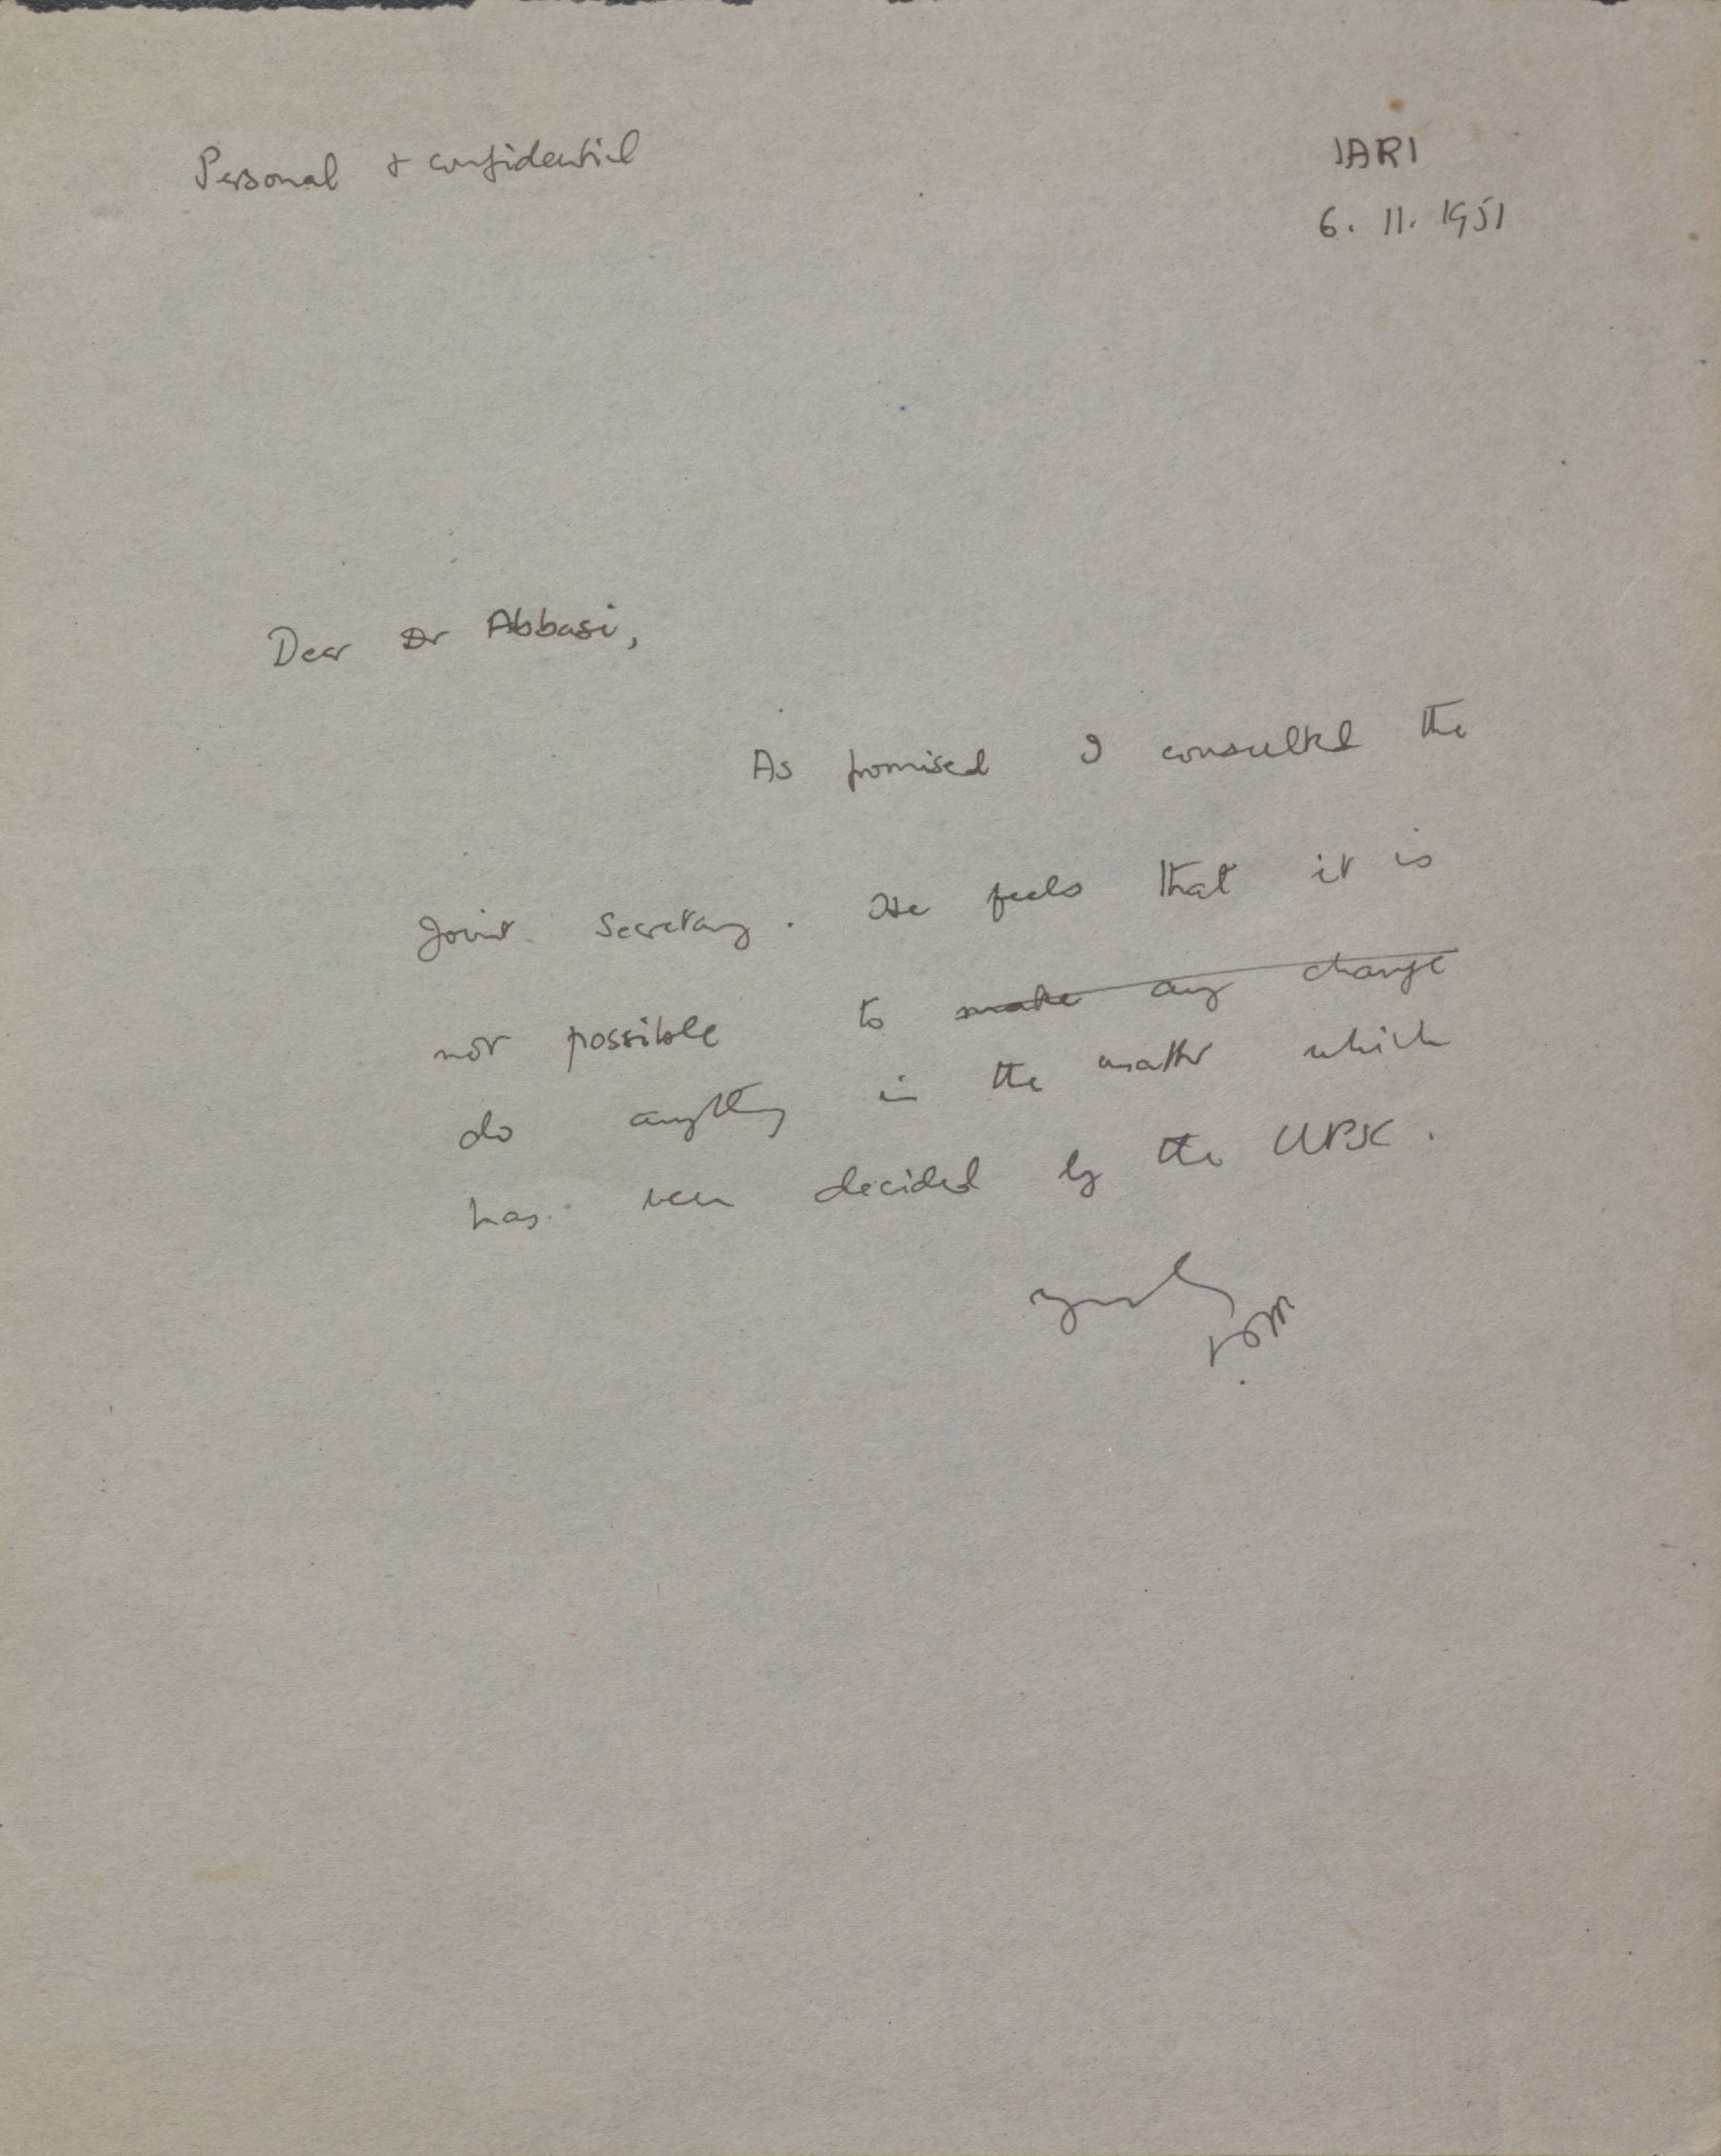 Personal & confidential
IARI
6. 11. 1951
Dear Dr Abbasi,
As promised I consulted the
Joint Secretary. He feels that it is
not possible to make any change
do anything in the matter which
has been decided by the UPSC.